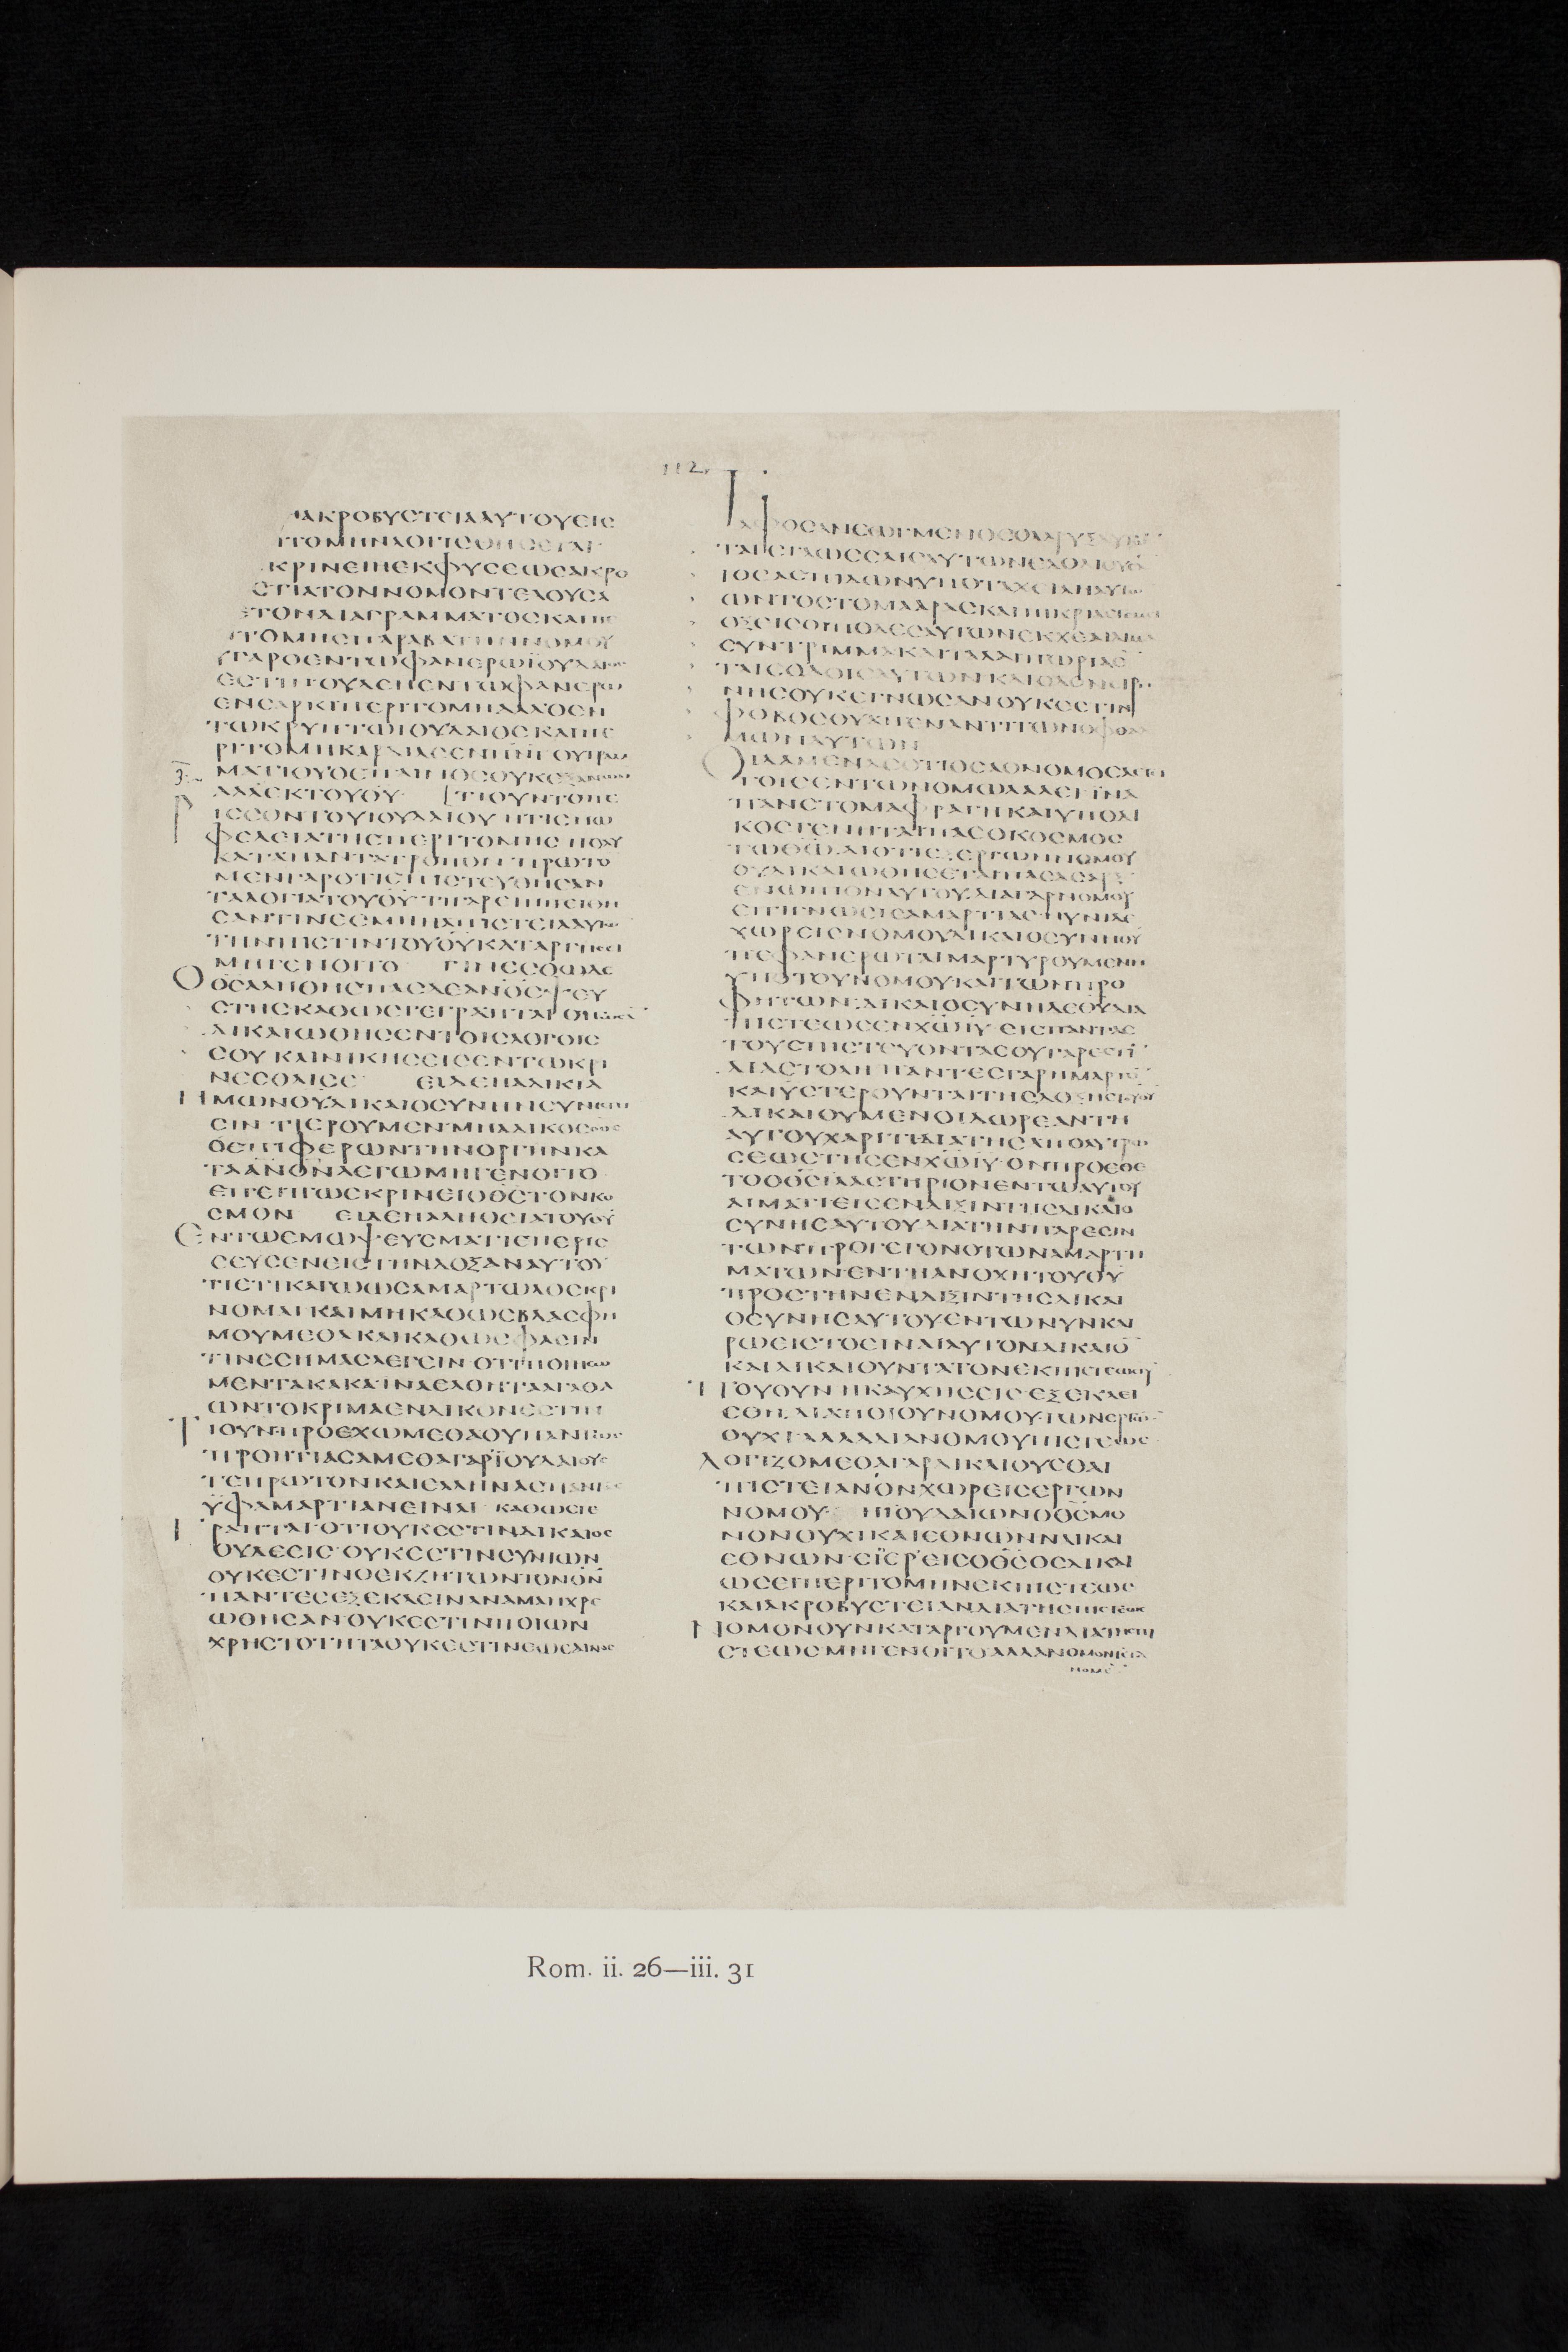 112.
ΑΚΡΟΒΥСΤΕΙΑΑΥΤΟΥΕΙС
ΙΤΟΜΗΝΛΟΓΙСΘΗСΕΤΑΙ
ΚΡΙΝΕΙΗΕΚΦΥСΕΩСΑΚΡΟ
СΤΙΑΤΟΝΝΟΜΟΝΤΕΛΟΥСΑ
ΕΤΟΝΔΙΑΓΡΑΜΜΑΤΟСΚΑΙΠΕ
ΙΤΟΜΗСΠΑΡΑΒΑΤΗΝΝΟΜΟΥ
ΥΓΑΡΟΕΝΤΩΦΑΝΕΡΩΪΟΥΔΑΙΟС
ΕСΤΙΝΟΥΔΕΗΕΝΤΩΦΑΝΕΡΩ
ΕΝСΑΡΚΙΠΕΡΙΤΟΜΗΑΛΛΟΕΝ
ΤΩΚΡΥΠΤΩΙΟΥΔΑΙΟСΚΑΙΠΕ
ΡΙΤΟΜΗΚΑΡΔΙΑСΕΝΠΝΙΟΥΓΡΑΜ
ΜΑΤΙΟΥΟΕΠΑΙΝΟСΟΥΚΕΞΑΝΩΝ
ΑΛΛΕΚΤΟΥΘΥ ΤΙΟΥΝΤΟΠΕ
ΡΙССΟΝΤΟΥΙΟΥΔΑΙΟΥ ΗΤΙСΗΩ
ΦΕΛΕΙΑΤΗСΠΕΡΙΤΟΜΗС ΠΟΛΥ
ΚΑΤΑΠΑΝΤΑΤΡΟΠΟΝ ΠΡΩΤΟ
ΜΕΝΓΑΡΟΤΙΕΠΙСΤΕΥΘΗСΑΝ
ΤΑΛΟΓΙΑΤΟΥΘΥ ΤΙΓΑΡΕΙΗΠΕΙΘΗ
СΑΝΤΙΝΕСΜΗΗΑΠΙСΤΕΙΑΑΥΤΩ
ΤΗΝΠΙСΤΙΝΤΟΥΘΥΚΑΤΑΡΓΗСΕΙ
ΜΗΓΕΝΟΙΤΟ ΓΙΝΕСΘΩΔΕ
ΟΘСΑΛΗΘΗСΠΑСΔΕΑΝΟСΨΕΥ
СΤΗСΚΑΘΩСΓΕΓΡΑΠΤΑΙ ΟΠΩСΑ
ΔΙΚΑΙΩΘΗСΕΝΤΟΙСΛΟΓΟΙС
СΟΥ ΚΑΙΝΙΚΗСΕΙСΕΝΤΩΚΡΙ
ΝΕСΘΑΙСΕ ΕΙΔΕΗΑΔΙΚΙΑ
ΗΜΩΝΘΥΔΙΚΑΙΟСΥΝΗΝСΥΝΙСΤΗ
СΙΝ ΤΙΕΡΟΥΜΕΝ ΜΗΑΔΙΚΟС
ΟΘСΕΠΙΦΕΡΩΝΤΗΝΟΡΓΗΝΚΑ
ΤΑΑΝΟΝΛΕΓΩΜΗΓΕΝΟΙΤΟ
ΕΠΕΙΠΩСΚΡΙΝΕΙΟΘСΤΟΝΚΟ
СΜΟΝ ΕΙΔΕΗΑΛΗΘΕΙΑΤΟΥΘΥ
ΕΝΤΩΕΜΩΨΕΥСΜΑΤΙΕΠΕΡΙС
СΕΥСΕΝΕΙСΤΗΝΔΟΞΑΝΑΥΤΟΥ
ΤΙΕΤΙΚΑΓΩΩСΑΜΑΡΤΩΛΟСΚΡΙ
ΝΟΜΑΙ ΚΑΙΜΗΚΑΘΩСΒΛΑСΦΗ
ΜΟΥΜΕΘΑΚΑΙΚΑΘΩСΦΑСΙΝ
ΤΙΝΕСΗΜΑСΛΕΓΕΙΝ ΟΤΙΠΟΙΗСΩ
ΜΕΝΤΑΚΑΚΑΙΝΑΕΛΘΗΤΑΑΓΑΘΑ
ΩΝΤΟΚΡΙΜΑΕΝΔΙΚΟΝΕСΤΙΝ
ΤΙΟΥΝ·ΠΡΟΕΧΩΜΕΘΑΟΥΠΑΝΤΩС
ΠΡΟΗΤΙΑСΑΜΕΘΑΓΑΡΪΟΥΔΑΙΟΥС
ΤΕΠΡΩΤΟΝΚΑΙΕΛΛΗΝΑСΠΑΝΤΑС
ΫΦΑΜΑΡΤΙΑΝΕΙΝΑΙ ΚΑΘΩСΓΕ
ΓΡΑΠΤΑΙΟΤΙΟΥΚΕСΤΙΝΔΙΚΑΙΟС
ΟΥΔΕΕΙС·ΟΥΚΕСΤΙΝСΥΝΙΩΝ
ΟΥΚΕСΤΙΝΟΕΚΖΗΤΩΝΤΟΝΘΝ
ΠΑΝΤΕСΕΞΕΚΛΕΙΝΑΝΑΜΑΗΧΡΕ
ΩΘΗСΑΝΟΥΚΕСΤΙΝΠΟΙΩΝ
ΧΡΗСΤΟΤΗΤΑΟΥΚΕСΤΙΝΕΩСΕΝΟС
ΤΑΦΟСΑΝΕΩΓΜΕΝΟСΟΛΑΡΥΞΑΥΤΩ
ΤΑΙСΓΛΩССΑΙСΑΥΤΩΝΕΔΟΛΙΟΥСΑ
ΙΟСΑСΠΙΔΩΝΥΠΟΤΑΧΕΙΛΗΑΥΤΩ
ΩΝΤΟСΤΟΜΑΑΡΑСΚΑΙΠΙΚΡΙΑСΓΕΜΕΙ
ΟΞΕΙСΟΙΠΟΔΕСΑΥΤΩΝΕΚΧΕΑΙΑΙΜΑ
СΥΝΤΡΙΜΜΑΚΑΙΤΑΛΑΙΠΩΡΙΑΕ
ΤΑΙСΟΔΟΙСΑΥΤΩΝΚΑΙΟΔΟΝΕΙΡΗ
ΝΗСΟΥΚΕΓΝΩСΑΝΟΥΚΕСΤΙΝ
ΦΟΒΟСΘΥΑΠΕΝΑΝΤΙΤΩΝΟΦΘΑΛ
ΜΩΝΑΥΤΩΝ
ΟΙΔΑΜΕΝΔΕΟΤΙΟСΑΟΝΟΜΟСΛΕΓΕΙ
ΤΟΙСΕΝΤΩΝΟΜΩΛΑΛΕΙ ΪΝΑ
ΠΑΝСΤΟΜΑΦΡΑΓΗΚΑΙΥΠΟΔΙ
ΚΟСΓΕΝΗΤΑΙΠΑСΟΚΟСΜΟС
ΤΩΘΩ.ΔΙΟΤΙΕΞΕΡΓΩΝΝΟΜΟΥ
ΟΥΔΙΚΑΙΩΘΗСΕΤΑΙΠΑСΑСΑΡΞ
ΕΝΩΠΙΟΝΑΥΤΟΥ.ΔΙΑΓΑΡΝΟΜΟΥ
ΕΠΙΓΝΩСΙСΑΜΑΡΤΙΑС·ΝΥΝΙΔΕ
ΧΩΡΕΙСΝΟΜΟΥΔΙΚΑΙΟСΥΝΗΘΥ
ΠΕΦΑΝΕΡΩΤΑΙΜΑΡΤΥΡΟΥΜΕΝΗ
ΥΠΟΤΟΥΝΟΜΟΥΚΑΙΤΩΝΠΡΟ
ΦΗΤΩΝ·ΔΙΚΑΙΟСΥΝΗΔΕΘΥΔΙΑ
ΠΙСΤΕΩСΕΝΧΩΙΥ ΕΙСΠΑΝΤΑС
ΤΟΥСΠΙСΤΕΥΟΝΤΑСΟΥΓΑΡΕСΤΙ
ΔΙΑСΤΟΛΗ ΠΑΝΤΕСΓΑΡΗΜΑΡΤΟ
ΚΑΙΥСΤΕΡΟΥΝΤΑΙΤΗСΔΟΞΗСΤΟΥΘΥ
ΔΙΚΑΙΟΥΜΕΝΟΙΔΩΡΕΑΝΤΗ
ΑΥΤΟΥΧΑΡΙΤΙΔΙΑΤΗСΑΠΟΛΥΤΡΩ
СΕΩСΤΗСΕΝΧΩΙΥ·ΟΝΠΡΟΕΘΕ
ΤΟΟΘСΙΛΑСΤΗΡΙΟΝΕΝΤΩΑΥΤΟΥ
ΑΙΜΑΤΙΕΙСΕΝΔΙΞΙΝΤΗСΔΙΚΑΙΟ
СΥΝΗСΑΥΤΟΥΔΙΑΤΗΝΠΑΡΕСΙΝ
ΤΩΝΠΡΟΓΕΓΟΝΟΤΩΝΑΜΑΡΤΗ
ΜΑΤΩΝΕΝΤΗΑΝΟΧΗΤΟΥΘΥ
ΠΡΟСΤΗΝΕΝΔΙΞΙΝΤΗСΔΙΚΑΙ
ΟСΥΝΗСΑΥΤΟΥΕΝΤΩΝΥΝΚΑΙ
ΡΩΕΙСΤΟΕΙΝΑΙΑΥΤΟΝΔΙΚΑΙΟ
ΚΑΙΔΙΚΑΙΟΥΝΤΑΤΟΝΕΚΠΙСΤΕΩСΙΥ
ΠΟΥΟΥΝ ΗΚΑΥΧΗСΕΙС ΕΞΕΚΛΕΙ
СΘΗ.ΔΙΑΠΟΙΟΥΝΟΜΟΥ·ΤΩΝΕΡΓΩ
ΟΥΧΙΑΛΛΑΔΙΑΝΟΜΟΥΠΙСΤΕΩС
ΛΟΓΙΖΟΜΕΘΑΓΑΡΔΙΚΑΙΟΥСΘΑΙ
ΠΙСΤΕΙΑΝΟΝΧΩΡΕΙСΕΡΓΩΝ
ΝΟΜΟΥ ΗΪΟΥΔΑΙΩΝΟΘСΜΟ
ΝΟΝΟΥΧΙΚΑΙΕΘΝΩΝΝΑΙΚΑΙ
ΕΘΝΩΝ·ΕΙΠΕΡΕΙСΟΘСΟСΔΙΚΑΙ
ΩСΕΙΠΕΡΙΤΟΜΗΝΕΚΠΙСΤΕΩС
ΚΑΙΑΚΡΟΒΥСΤΕΙΑΝΔΙΑΤΗСΠΙСΤΕΩС
ΝΟΜΟΝΟΥΝΚΑΤΑΡΓΟΥΜΕΝΔΙΑΤΗСΠΙ
СΤΕΩСΜΗΓΕΝΟΙΤΟΑΛΛΑΝΟΜΟΝΙСΤΑ
ΝΟΜΕ
Rom. ii. 26—iii. 31